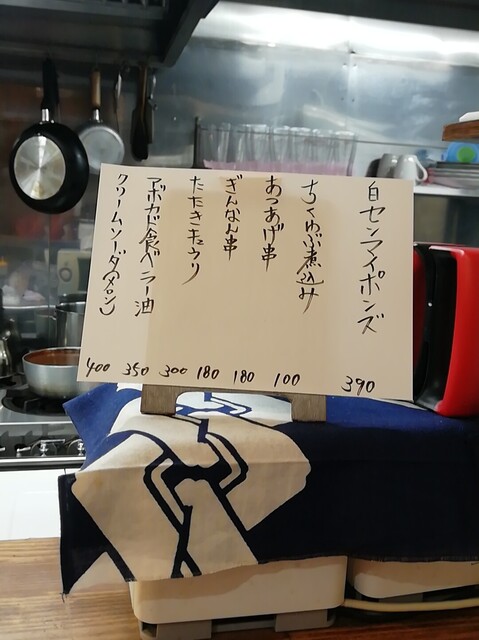 白センマイポンズ 390
ちくわぶ煮込み 100
あつあげ串 180
ぎんなん串 180
たたきキュウリ 300
アボカド食べラー油 350
クリームソーダ(メロン) 400